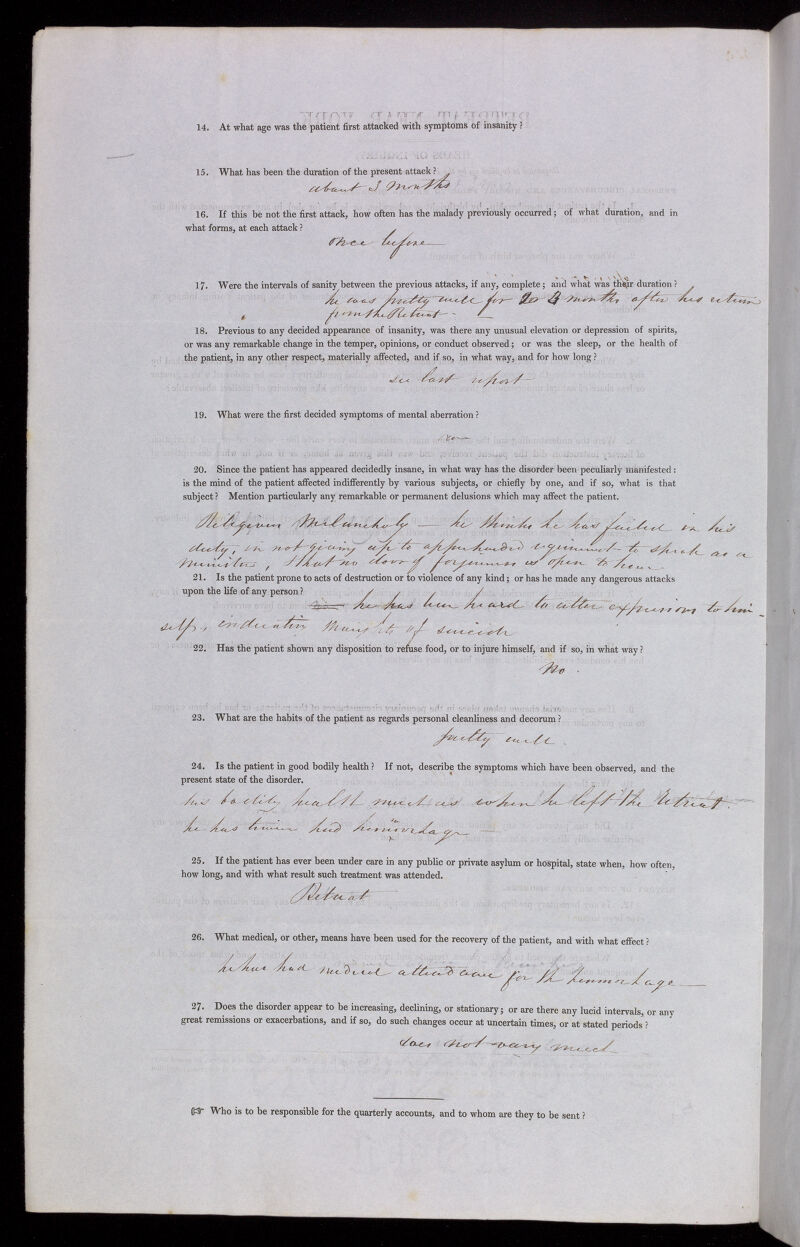 14. At what age was the patient first attacked with symptoms of insanity?
15. What has been the duration of the present attack?
about 3 Months
16. If this be not the first attack, how often has the malady previously occurred; of what duration, and in
what forms, at each attack?
once before
17. Were the intervals of sanity between the previous attacks, if any, complete; and what was their duration?
he was pretty well for 2 or 3 months after his return
from the Retreat -
18. Previous to any decided appearance of insanity, was there any unusual elevation or depression of spirits,
or was any remarkable change in the temper, opinions, or conduct observed; or was the sleep, or the health of
the patient, in any other respect, materially affected, and if so, in what way, and for how long?
see last report
19. What were the first decided symptoms of mental aberration?
20. Since the patient has appeared decidedly insane, in what way has the disorder been peculiarly manifested:
is the mind of the patient affected indifferently by various subjects, or chiefly by one, and if so, what is that
subject? Mention particularly any remarkable or permanent delusions which may affect the patient.
Religious Melancholy — he thinks he has failed in his
duty, in not giving up to apprehended requirement to speak as a
minister, & that no door of forgiveness is open to him
21. Is the patient prone to acts of destruction or to violence of any kind; or has he made any dangerous attacks
upon the life of any person?
he has been heard to utter expressions to him-
self, indicating thoughts of suicide
22. Has the patient shown any disposition to refuse food, or to injure himself, and if so, in what way?
No.
23. What are the habits of the patient as regards personal cleanliness and decorum?
pretty well.
24. Is the patient in good bodily health? If not, describe the symptoms which have been observed, and the
present state of the disorder.
his bodily health much as when he left the Retreat.
he has had hemorrhage —
25. If the patient has ever been under care in any public or private asylum or hospital, state when, how often,
how long, and with what result such treatment was attended.
Retreat
26. What medical, or other, means have been used for the recovery of the patient, and with what effect?
he has had medical attendance for the hemorrhage —
27. Does the disorder appear to be increasing, declining, or stationary; or are there any lucid intervals, or any
great remissions or exacerbations, and if so, do such changes occur at uncertain times, or at stated periods?
does not vary much
☞ Who is to be responsible for the quarterly accounts, and to whom are they to be sent?